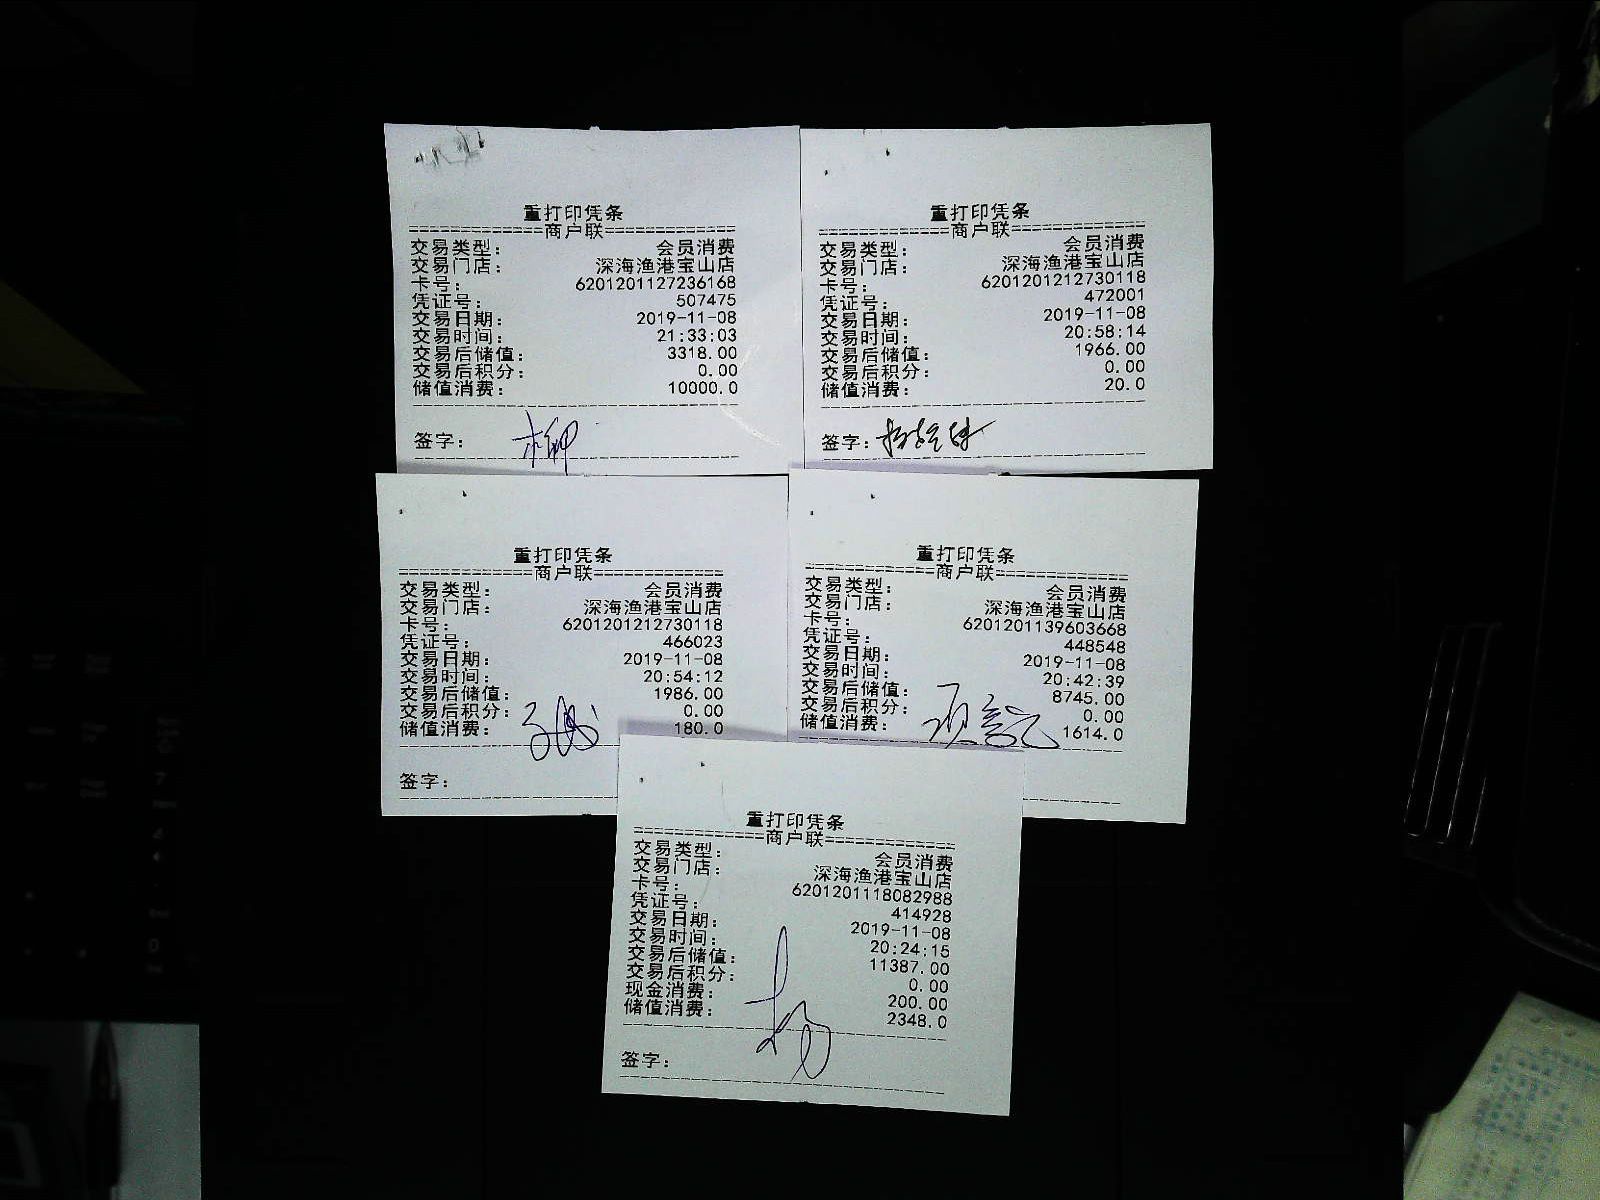 重打印凭条
=============商户联=============
交易类型： 会员消费
交易门店： 深海渔港宝山店
卡号： 6201201127236168
凭证号： 507475
交易日期： 2019-11-08
交易时间： 21:33:03
交易后储值： 3318.00
交易后积分： 0.00
储值消费： 10000.0
签字： 柳
重打印凭条
=============商户联=============
交易类型： 会员消费
交易门店： 深海渔港宝山店
卡号： 6201201212730118
凭证号： 472001
交易日期： 2019-11-08
交易时间： 20:58:14
交易后储值： 1966.00
交易后积分： 0.00
储值消费： 20.0
签字：
重打印凭条
=============商户联=============
交易类型： 会员消费
交易门店： 深海渔港宝山店
卡号： 6201201212730118
凭证号： 466023
交易日期： 2019-11-08
交易时间： 20:54:12
交易后储值： 1986.00
交易后积分： 0.00
储值消费： 180.0
签字：
重打印凭条
=============商户联=============
交易类型： 会员消费
交易门店： 深海渔港宝山店
卡号： 6201201139603668
凭证号： 448548
交易日期： 2019-11-08
交易时间： 20:42:39
交易后储值： 8745.00
交易后积分： 0.00
储值消费： 1614.0
重打印凭条
=============商户联=============
交易类型： 会员消费
交易门店： 深海渔港宝山店
卡号： 6201201118082988
凭证号： 414928
交易日期： 2019-11-08
交易时间： 20:24:15
交易后储值： 11387.00
交易后积分： 0.00
现金消费： 200.00
储值消费： 2348.0
签字： 杨